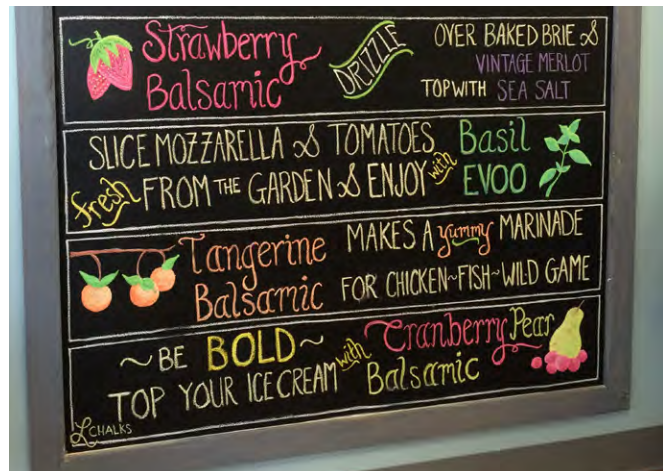 Strawberry Balsamic
DRIZZLE
OVER BAKED BRIE &
VINTAGE MERLOT
TOP WITH SEA SALT
SLICE MOZZARELLA & TOMATOES
fresh FROM THE GARDEN & ENJOY with
Basil
EVOO
Tangerine
Balsamic
MAKES A yummy MARINADE
FOR CHICKEN~FISH~WILD GAME
~BE BOLD~
TOP YOUR ICE CREAM with
Cranberry Pear
Balsamic
L CHALKS